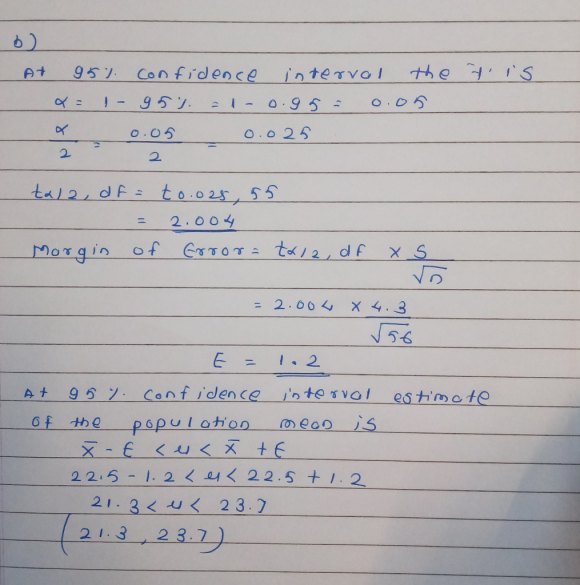 b)
At 95% confidence interval the 't' is
α = 1 - 95% = 1 - 0.95 = 0.05
α/2 = 0.05/2 = 0.025
tα/2, df = t0.025, 55
= 2.004
Margin of Error = tα/2, df × S/√n
= 2.004 × 4.3/√56
E = 1.2
At 95% confidence interval estimate
of the population mean is
x̄ - E < μ < x̄ + E
22.5 - 1.2 < μ < 22.5 + 1.2
21.3 < μ < 23.7
(21.3, 23.7)